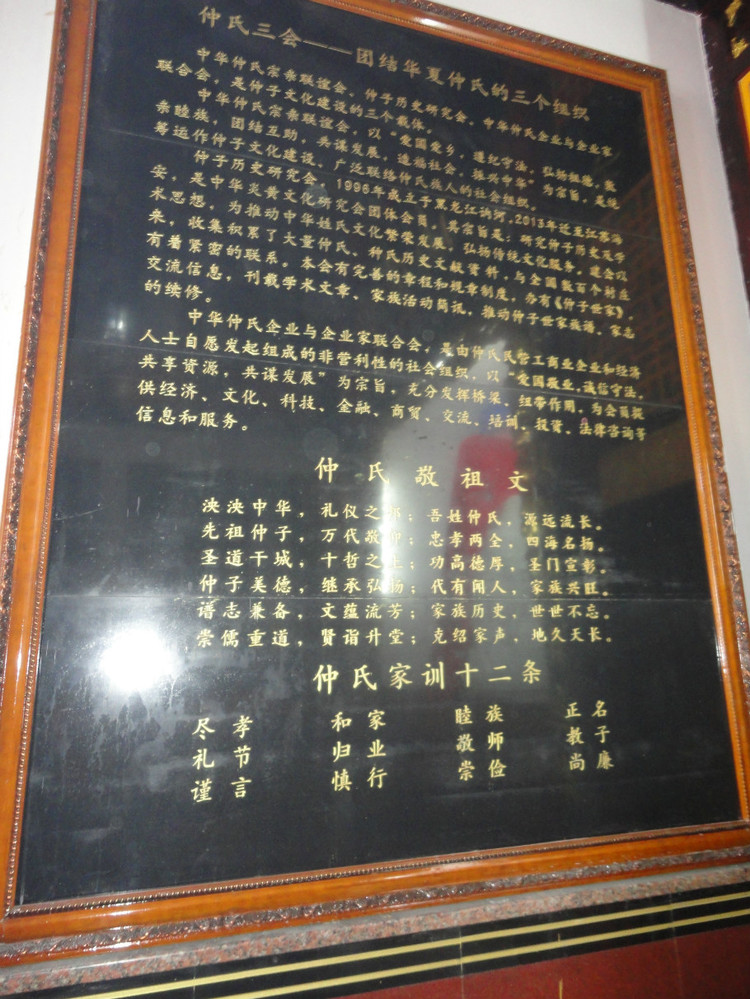 仲氏三会——团结华夏仲氏的三个组织
中华仲氏宗亲联谊会，仲子历史研究会，中华仲氏企业与企业家
联合会，是仲子文化建设的三个载体。
中华仲氏宗亲联谊会，以“爱国爱乡，遵纪守法，弘扬祖德，敦
亲睦族，团结互助，共谋发展，造福社会，振兴中华”为宗旨，是统
筹运作仲子文化建设，广泛联络仲氏族人的社会组织。
仲子历史研究会，1996年成立于黑龙江讷河，2013年迁至江苏海
安，是中华炎黄文化研究会团体会员。其宗旨是：研究仲子历史及学
术思想，为推动中华姓氏文化繁荣发展，弘扬传统文化服务。建会以
来，收集积累了大量仲氏、种氏历史文献资料，与全国数百个村庄
有着紧密的联系。本会有完善的章程和规章制度，办有《仲子世家》，
交流信息，刊载学术文章、家族活动简讯，推动仲子世家族谱、家志
的续修。
中华仲氏企业与企业家联合会，是由仲氏民营工商业企业和经济
人士自愿发起组成的非营利性的社会组织，以“爱国敬业，诚信守法，
共享资源，共谋发展”为宗旨，充分发挥桥梁、纽带作用，为会员提
供经济、文化、科技、金融、商贸、交流、培训、投资、法律咨询等
信息和服务。
仲氏敬祖文
泱泱中华，礼仪之邦；吾姓仲氏，源远流长。
先祖仲子，万代敬仰；忠孝两全，四海名扬。
圣道干城，十哲之上；功高德厚，圣门宣彰。
仲子美德，继承弘扬；代有闻人，家族兴旺。
谱志兼备，文蕴流芳；家族历史，世世不忘。
崇儒重道，贤诣升堂；克绍家声，地久天长。
仲氏家训十二条
尽孝 和家 睦族 正名
礼节 归业 敬师 教子
谨言 慎行 崇俭 尚廉